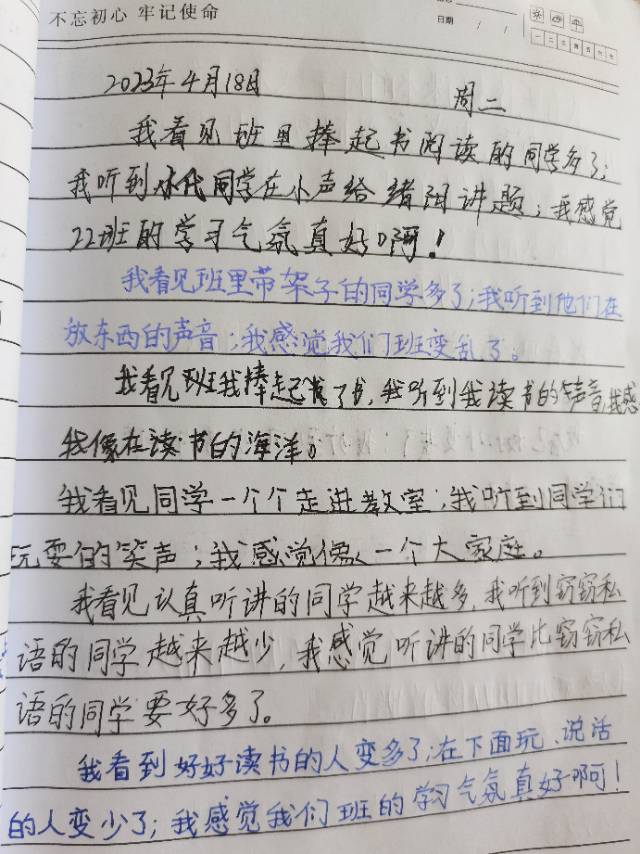 不忘初心 牢记使命
日期 / /
一 二 三 四 五 六 日
2023年4月18日 周二
我看见班里捧起书阅读的同学多了;
我听到 同学在小声给绪阳讲题;我感觉
22班的学习气氛真好啊!
我看见班里带架子的同学多了;我听到他们在
放东西的声音;我感觉我们班变乱了。
我看见班我捧起 了书,我听到我读书的声音,我感
我像在读书的海洋。
我看见同学一个个走进教室;我听到同学们
玩耍的笑声;我感觉像一个大家庭。
我看见认真听讲的同学越来越多,我听到窃窃私
语的同学越来越少,我感觉听讲的同学比窃窃私
语的同学要好多了。
我看到好好读书的人变多了;在下面玩、说话
的人变少了;我感觉我们班的学习气氛真好啊!